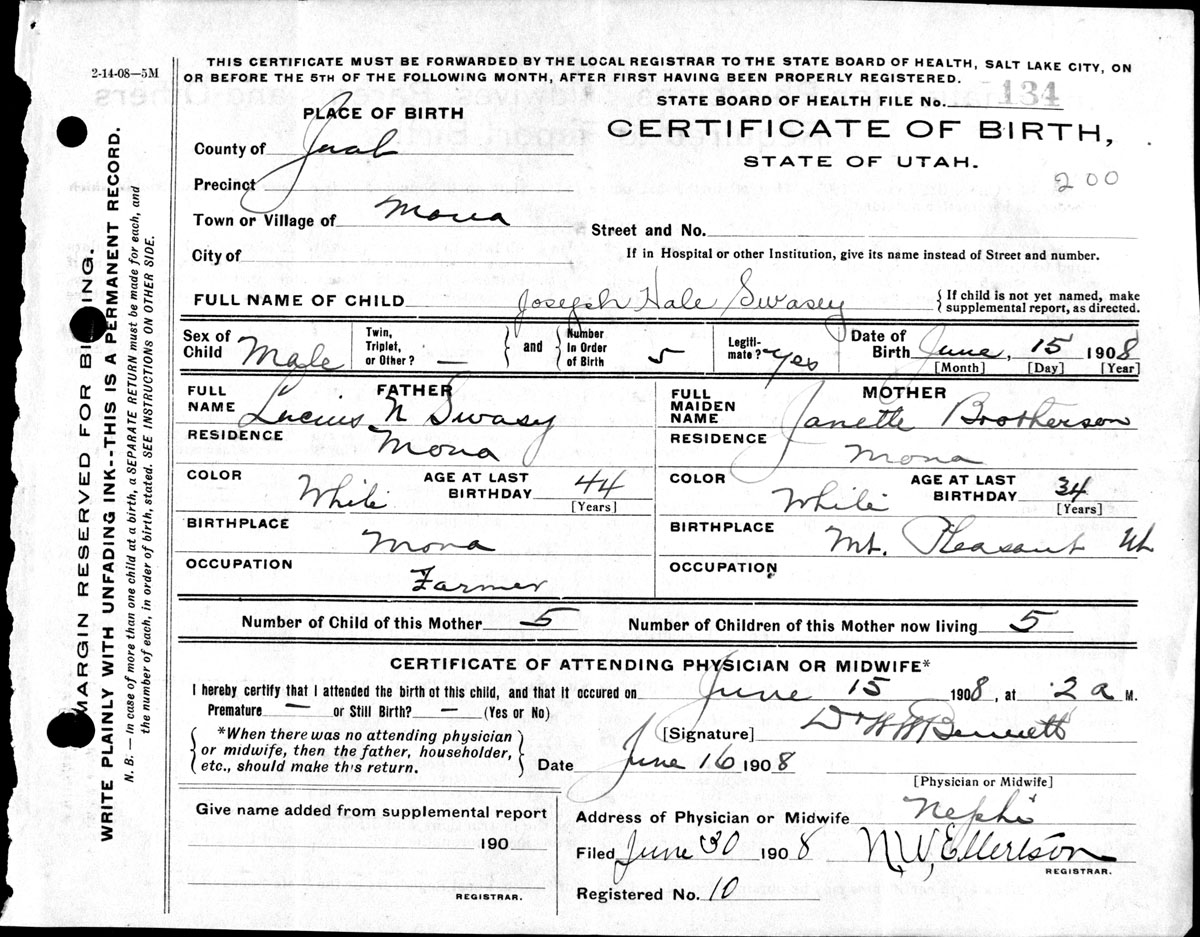 2-14-08—5M
THIS CERTIFICATE MUST BE FORWARDED BY THE LOCAL REGISTRAR TO THE STATE BOARD OF HEALTH, SALT LAKE CITY, ON
OR BEFORE THE 5TH OF THE FOLLOWING MONTH, AFTER FIRST HAVING BEEN PROPERLY REGISTERED.
STATE BOARD OF HEALTH FILE No. 134
PLACE OF BIRTH
CERTIFICATE OF BIRTH,
STATE OF UTAH.
200
County of Juab
Precinct
Town or Village of Mona
Street and No.
City of
If in Hospital or other Institution, give its name instead of Street and number.
FULL NAME OF CHILD Joseph Hale Swasey { If child is not yet named, make
supplemental report, as directed.
Sex of Child Male
Twin, Triplet, or Other? —
and
Number In Order of Birth 5
Legiti-mate? Yes
Date of Birth June, 15 1908
[Month] [Day] [Year]
FATHER
FULL NAME Lucius N Swasy
RESIDENCE Mona
COLOR White AGE AT LAST BIRTHDAY 44 [Years]
BIRTHPLACE Mona
OCCUPATION Farmer
MOTHER
FULL MAIDEN NAME Janette Brotherson
RESIDENCE Mona
COLOR White AGE AT LAST BIRTHDAY 34 [Years]
BIRTHPLACE Mt. Pleasant Ut
OCCUPATION
Number of Child of this Mother 5 Number of Children of this Mother now living 5
CERTIFICATE OF ATTENDING PHYSICIAN OR MIDWIFE*
I hereby certify that I attended the birth of this child, and that it occured on June 15 1908, at 2 a M.
Premature — or Still Birth? — (Yes or No)
*When there was no attending physician
or midwife, then the father, householder,
etc., should make this return.
[Signature] Dr W W Bennett
Date June 16 1908
[Physician or Midwife]
Give name added from supplemental report
190
REGISTRAR.
Address of Physician or Midwife Nephi
Filed June 30 1908 N, W, Ellertson
REGISTRAR.
Registered No. 10
MARGIN RESERVED FOR BINDING.
WRITE PLAINLY WITH UNFADING INK--THIS IS A PERMANENT RECORD.
N. B. — In case of more than one child at a birth, a SEPARATE RETURN must be made for each, and
the number of each, in order of birth, stated. SEE INSTRUCTIONS ON OTHER SIDE.